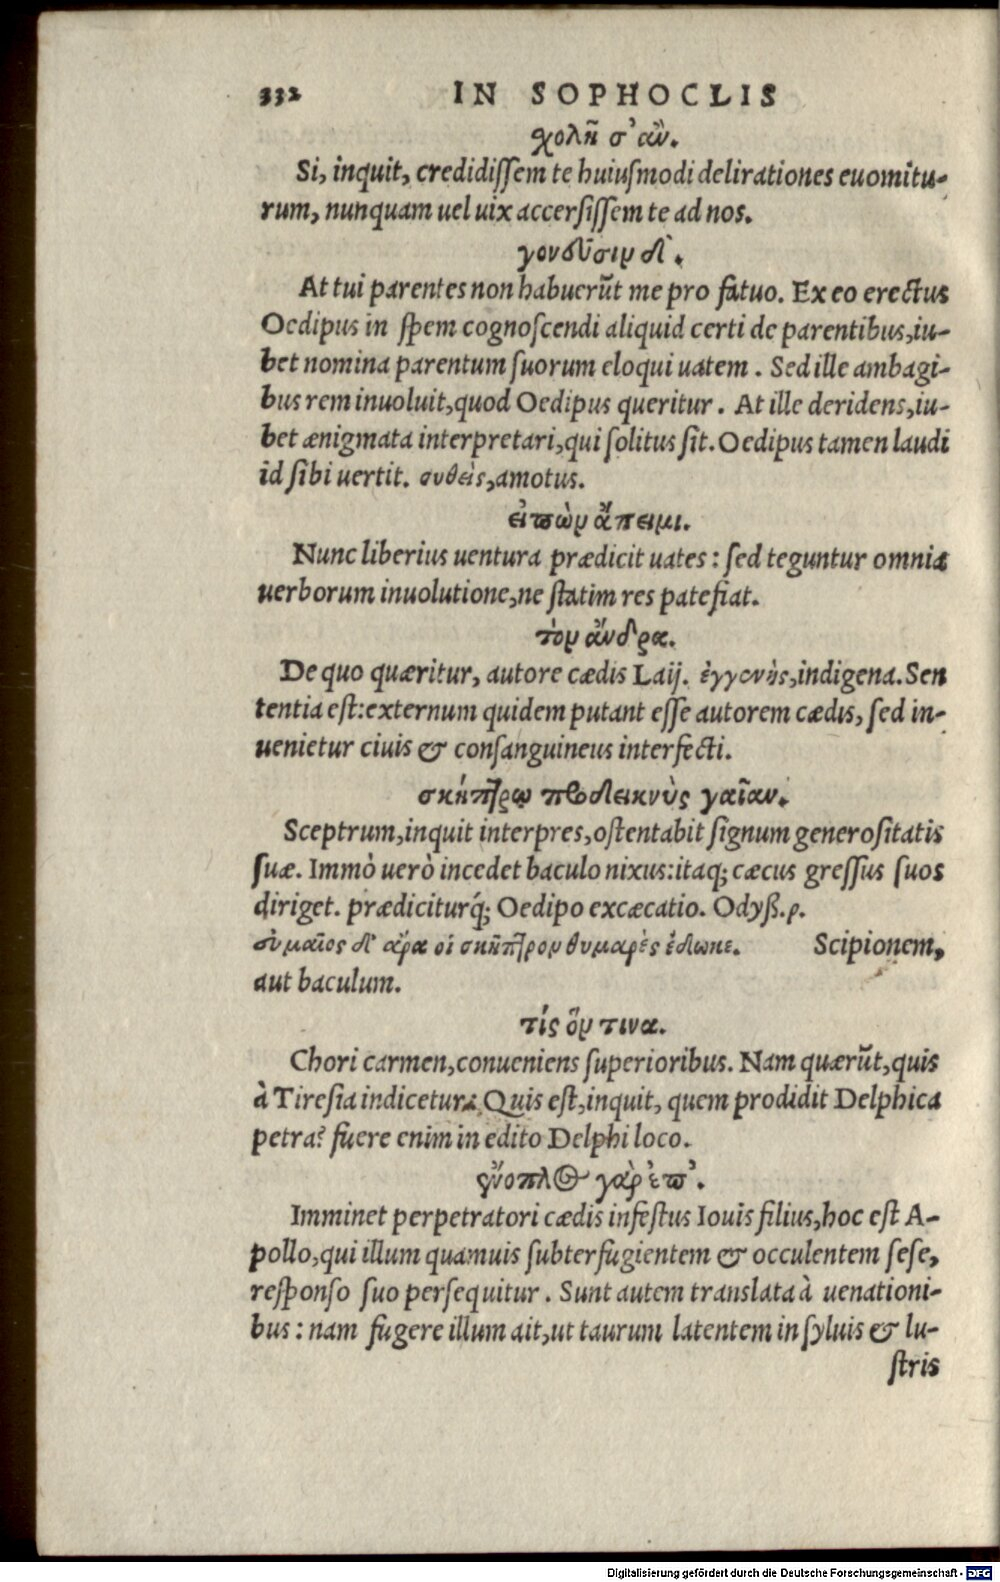 332 IN SOPHOCLIS
χολῆ σ' ἂν.
Si, inquit, credidissem te huiusmodi delirationes euomitu-
rum, nunquam uel uix accersissem te ad nos.
γονεῦσιν δ'.
At tui parentes non habuerũt me pro fatuo. Ex eo erectus
Oedipus in spem cognoscendi aliquid certi de parentibus, iu-
bet nomina parentum suorum eloqui uatem. Sed ille ambagi-
bus rem inuoluit, quod Oedipus queritur. At ille deridens, iu-
bet ænigmata interpretari, qui solitus sit. Oedipus tamen laudi
id sibi uertit. συθεὶς, amotus.
εἰπὼν ἄπειμι.
Nunc liberius uentura prædicit uates: sed teguntur omnia
uerborum inuolutione, ne statim res patefiat.
τὸν ἄνδρα.
De quo quæritur, autore cædis Laij. ἐγγενὴς, indigena. Sen
tentia est: externum quidem putant esse autorem cædis, sed in-
uenietur ciuis & consanguineus interfecti.
σκήπτρῳ προδεικνὺς γαῖαν.
Sceptrum, inquit interpres, ostentabit signum generositatis
suæ. Immò uerò incedet baculo nixus: itaq; cæcus gressus suos
diriget. prædiciturq́; Oedipo excæcatio. Odyß. ρ.
σύμαιος δ' ἄρα οἱ σκῆπτρον θυμαρὲς ἔδωκε. Scipionem,
aut baculum.
τίς ὅν τινα.
Chori carmen, conueniens superioribus. Nam quærũt, quis
à Tiresia indicetur. Quis est, inquit, quem prodidit Delphica
petra? fuere enim in edito Delphi loco.
ἔνοπλος γὰρ ἐπ'.
Imminet perpetratori cædis infestus Iouis filius, hoc est A-
pollo, qui illum quamuis subterfugientem & occulentem sese,
responso suo persequitur. Sunt autem translata à uenationi-
bus: nam fugere illum ait, ut taurum latentem in syluis & lu-
stris
Digitalisierung gefördert durch die Deutsche Forschungsgemeinschaft - DFG